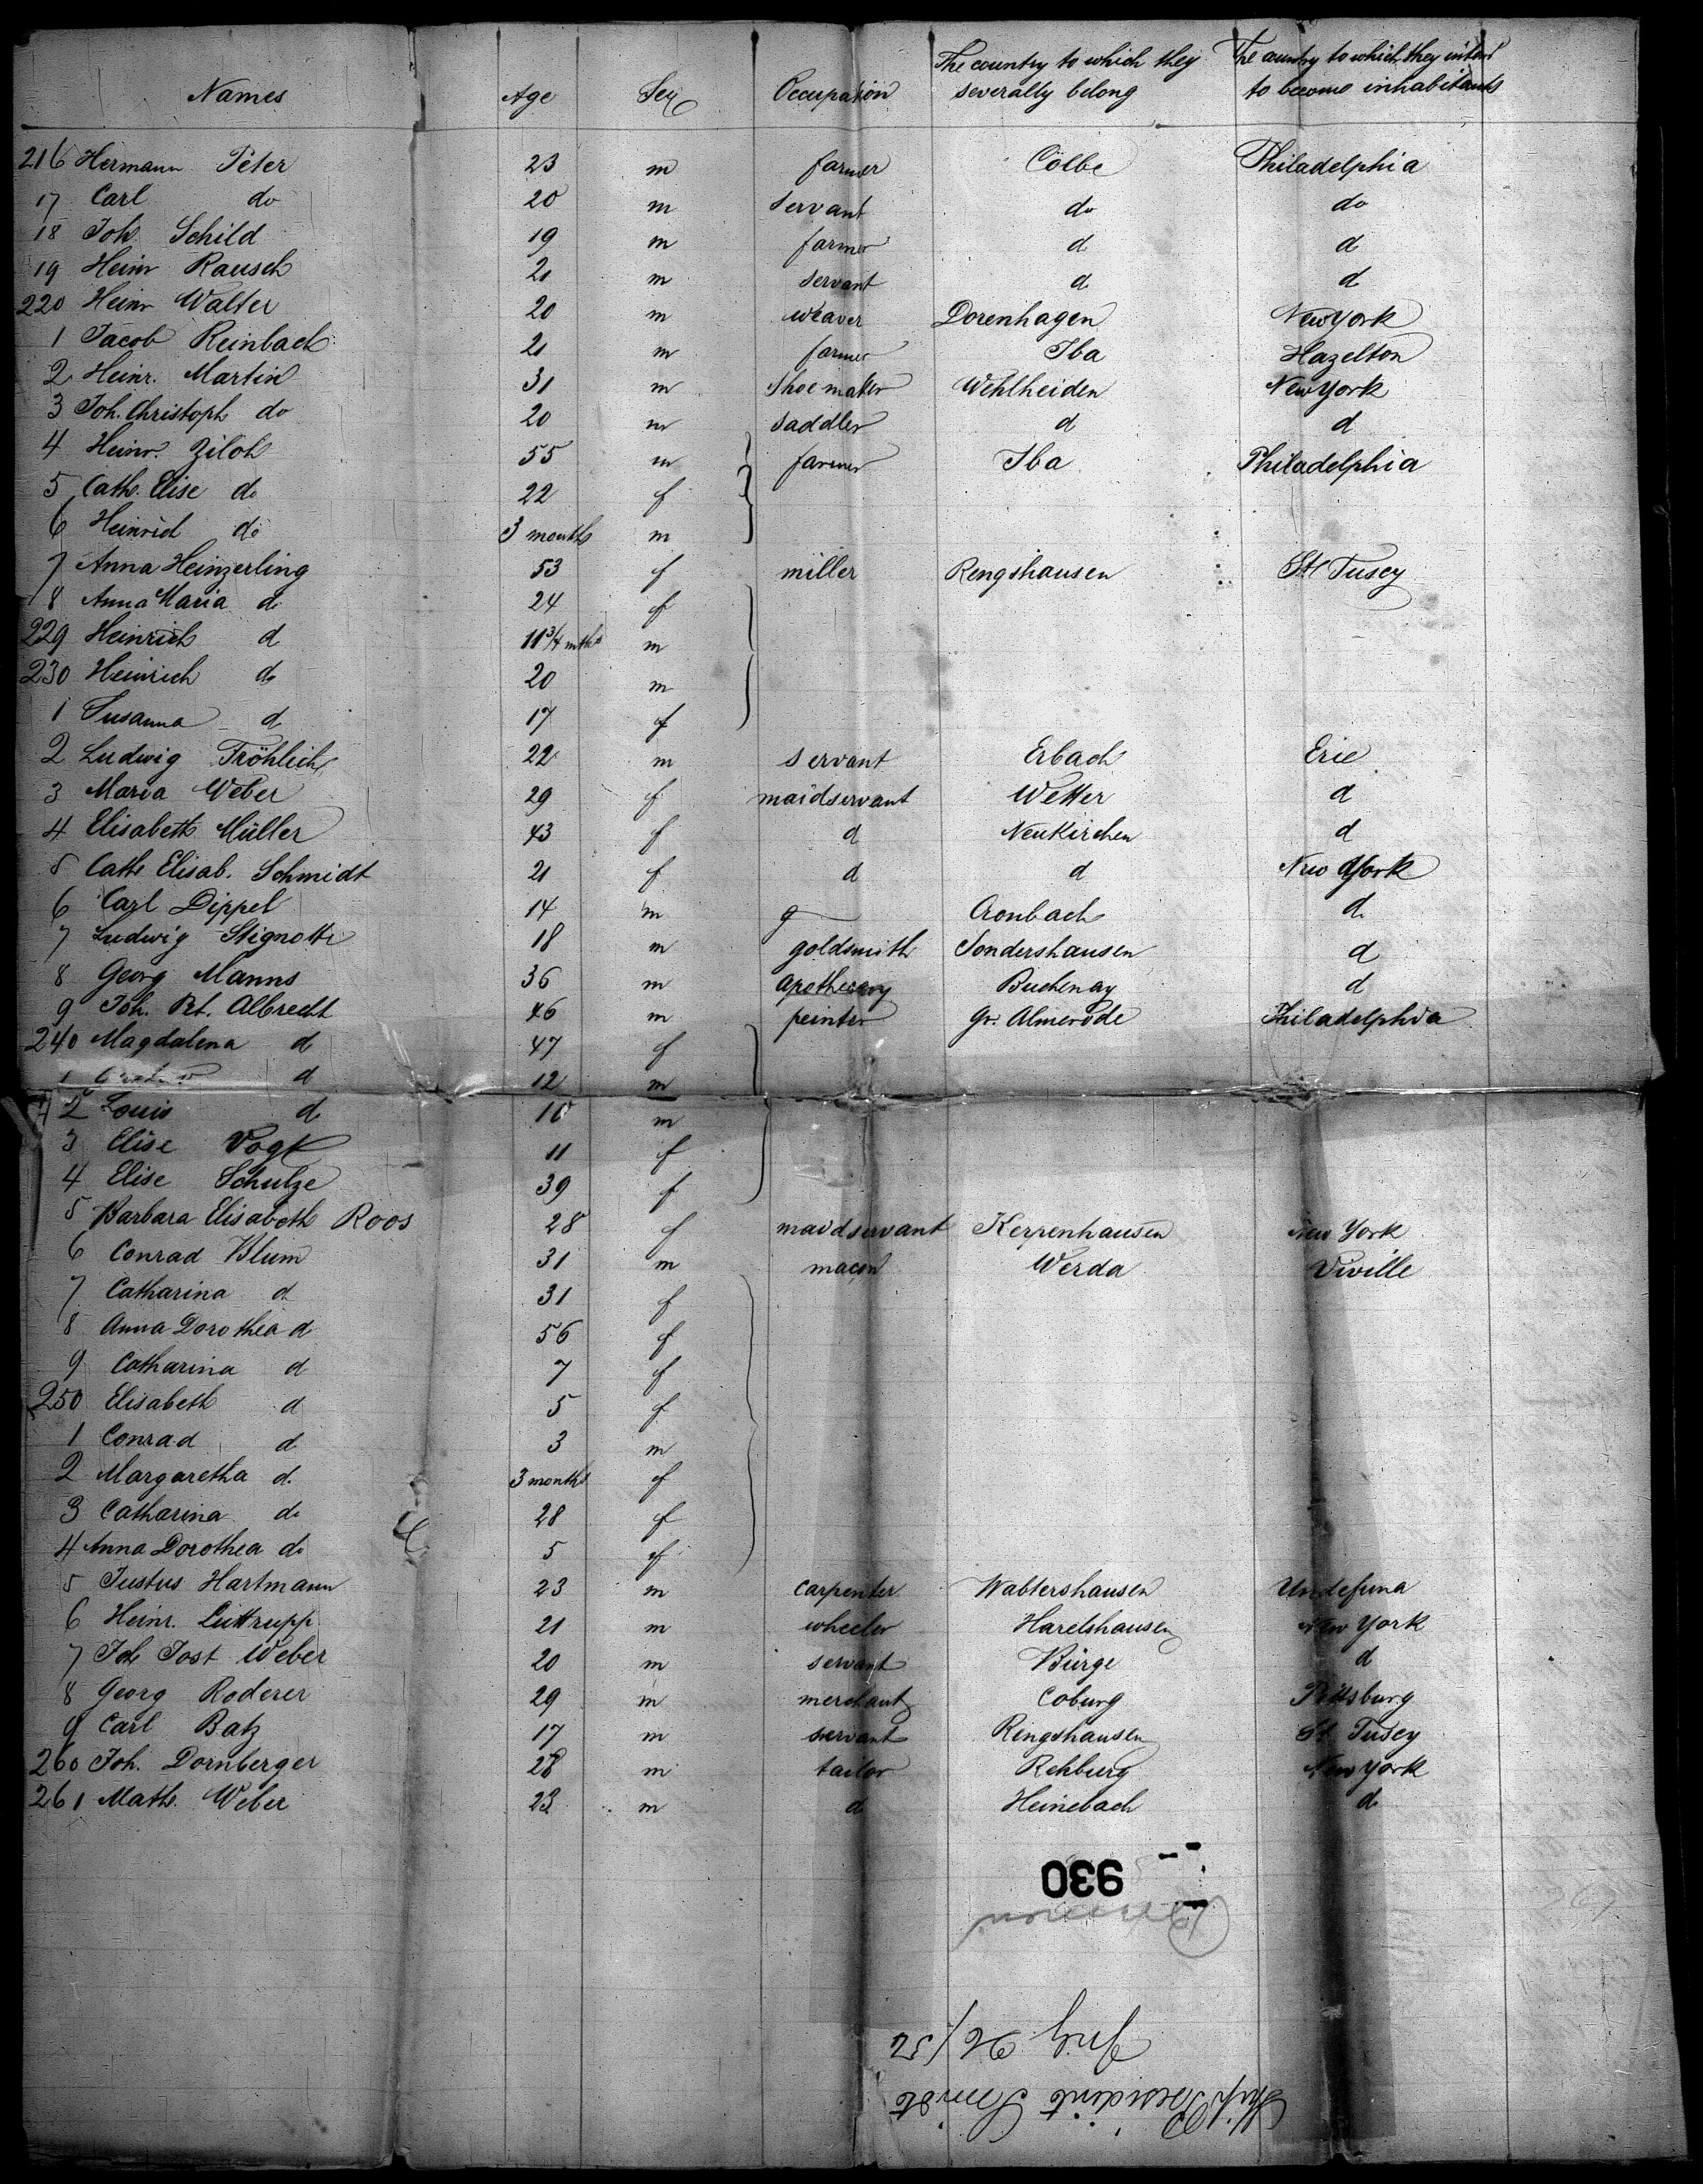 Names Age Sex Occupation The country to which they severally belong The country to which they intend to become inhabitants
216 Hermann Peter 23 m farmer Cölbe Philadelphia
17 Carl do 20 m servant do do
18 Joh. Schild 19 m farmer d d
19 Heinr Rausch 21 m servant d d
220 Heinr Walter 20 m weaver Dorenhagen New York
1 Jacob Reinbach 21 m farmer Iba Hazelton
2 Heinr. Martin 31 m shoe maker Wehlheiden New York
3 Joh. Christoph do 20 m saddler d d
4 Heinr. Ziloh 55 m farmer Iba Philadelphia
5 Cath. Elise do 22 f
6 Heinrich do 3 months m
7 Anna Heinzerling 53 f miller Rengshausen St Tusey
8 Anna Maria d 24 f
229 Heinrich d 11 3/4 mths m
230 Heinrich do 20 m
1 Susanna d 17 f
2 Ludwig Fröhlich 22 m servant Erbach Erie
3 Maria Weber 29 f maidservant Wetter d
4 Elisabeth Müller 43 f d Neukirchen d
5 Cath Elisab. Schmidt 21 f d d New York
6 Carl Dippel 14 m Cronbach d
7 Ludwig Stignotte 18 m goldsmith Sondershausen d
8 Georg Manns 36 m apothecary Buchenay d
9 Joh. Pet. Albrecht 46 m peinter Gr. Almerode Philadelphia
240 Magdalena d 47 f
1 d 12 m
2 Louis d 10 m
3 Elise Vogt 11 f
4 Elise Schulze 39 f
5 Barbara Elisabeth Roos 28 f maidservant Kerpenhausen New York
6 Conrad Blum 31 m macon Werda Viville
7 Catharina d 31 f
8 Anna Dorothea d 56 f
9 Catharina d 7 f
250 Elisabeth d 5 f
1 Conrad d 3 m
2 Margaretha d. 3 months f
3 Catharina do 28 f
4 Anna Dorothea do 5 f
5 Justus Hartmann 23 m carpenter Wabtershausen Undefuna
6 Heinr. Luttrupp 21 m wheeler Harelshausen New York
7 Joh Jost Weber 20 m servant Bürge d
8 Georg Roderer 29 m merchant Coburg Pittsburg
9 Carl Batz 17 m servant Ringshausen St. Tusey
260 Joh. Dornberger 28 m tailor Rehburg New York
261 Math. Weber 23 m d Heinebach d
930
July 26/52
Ship President Smidt